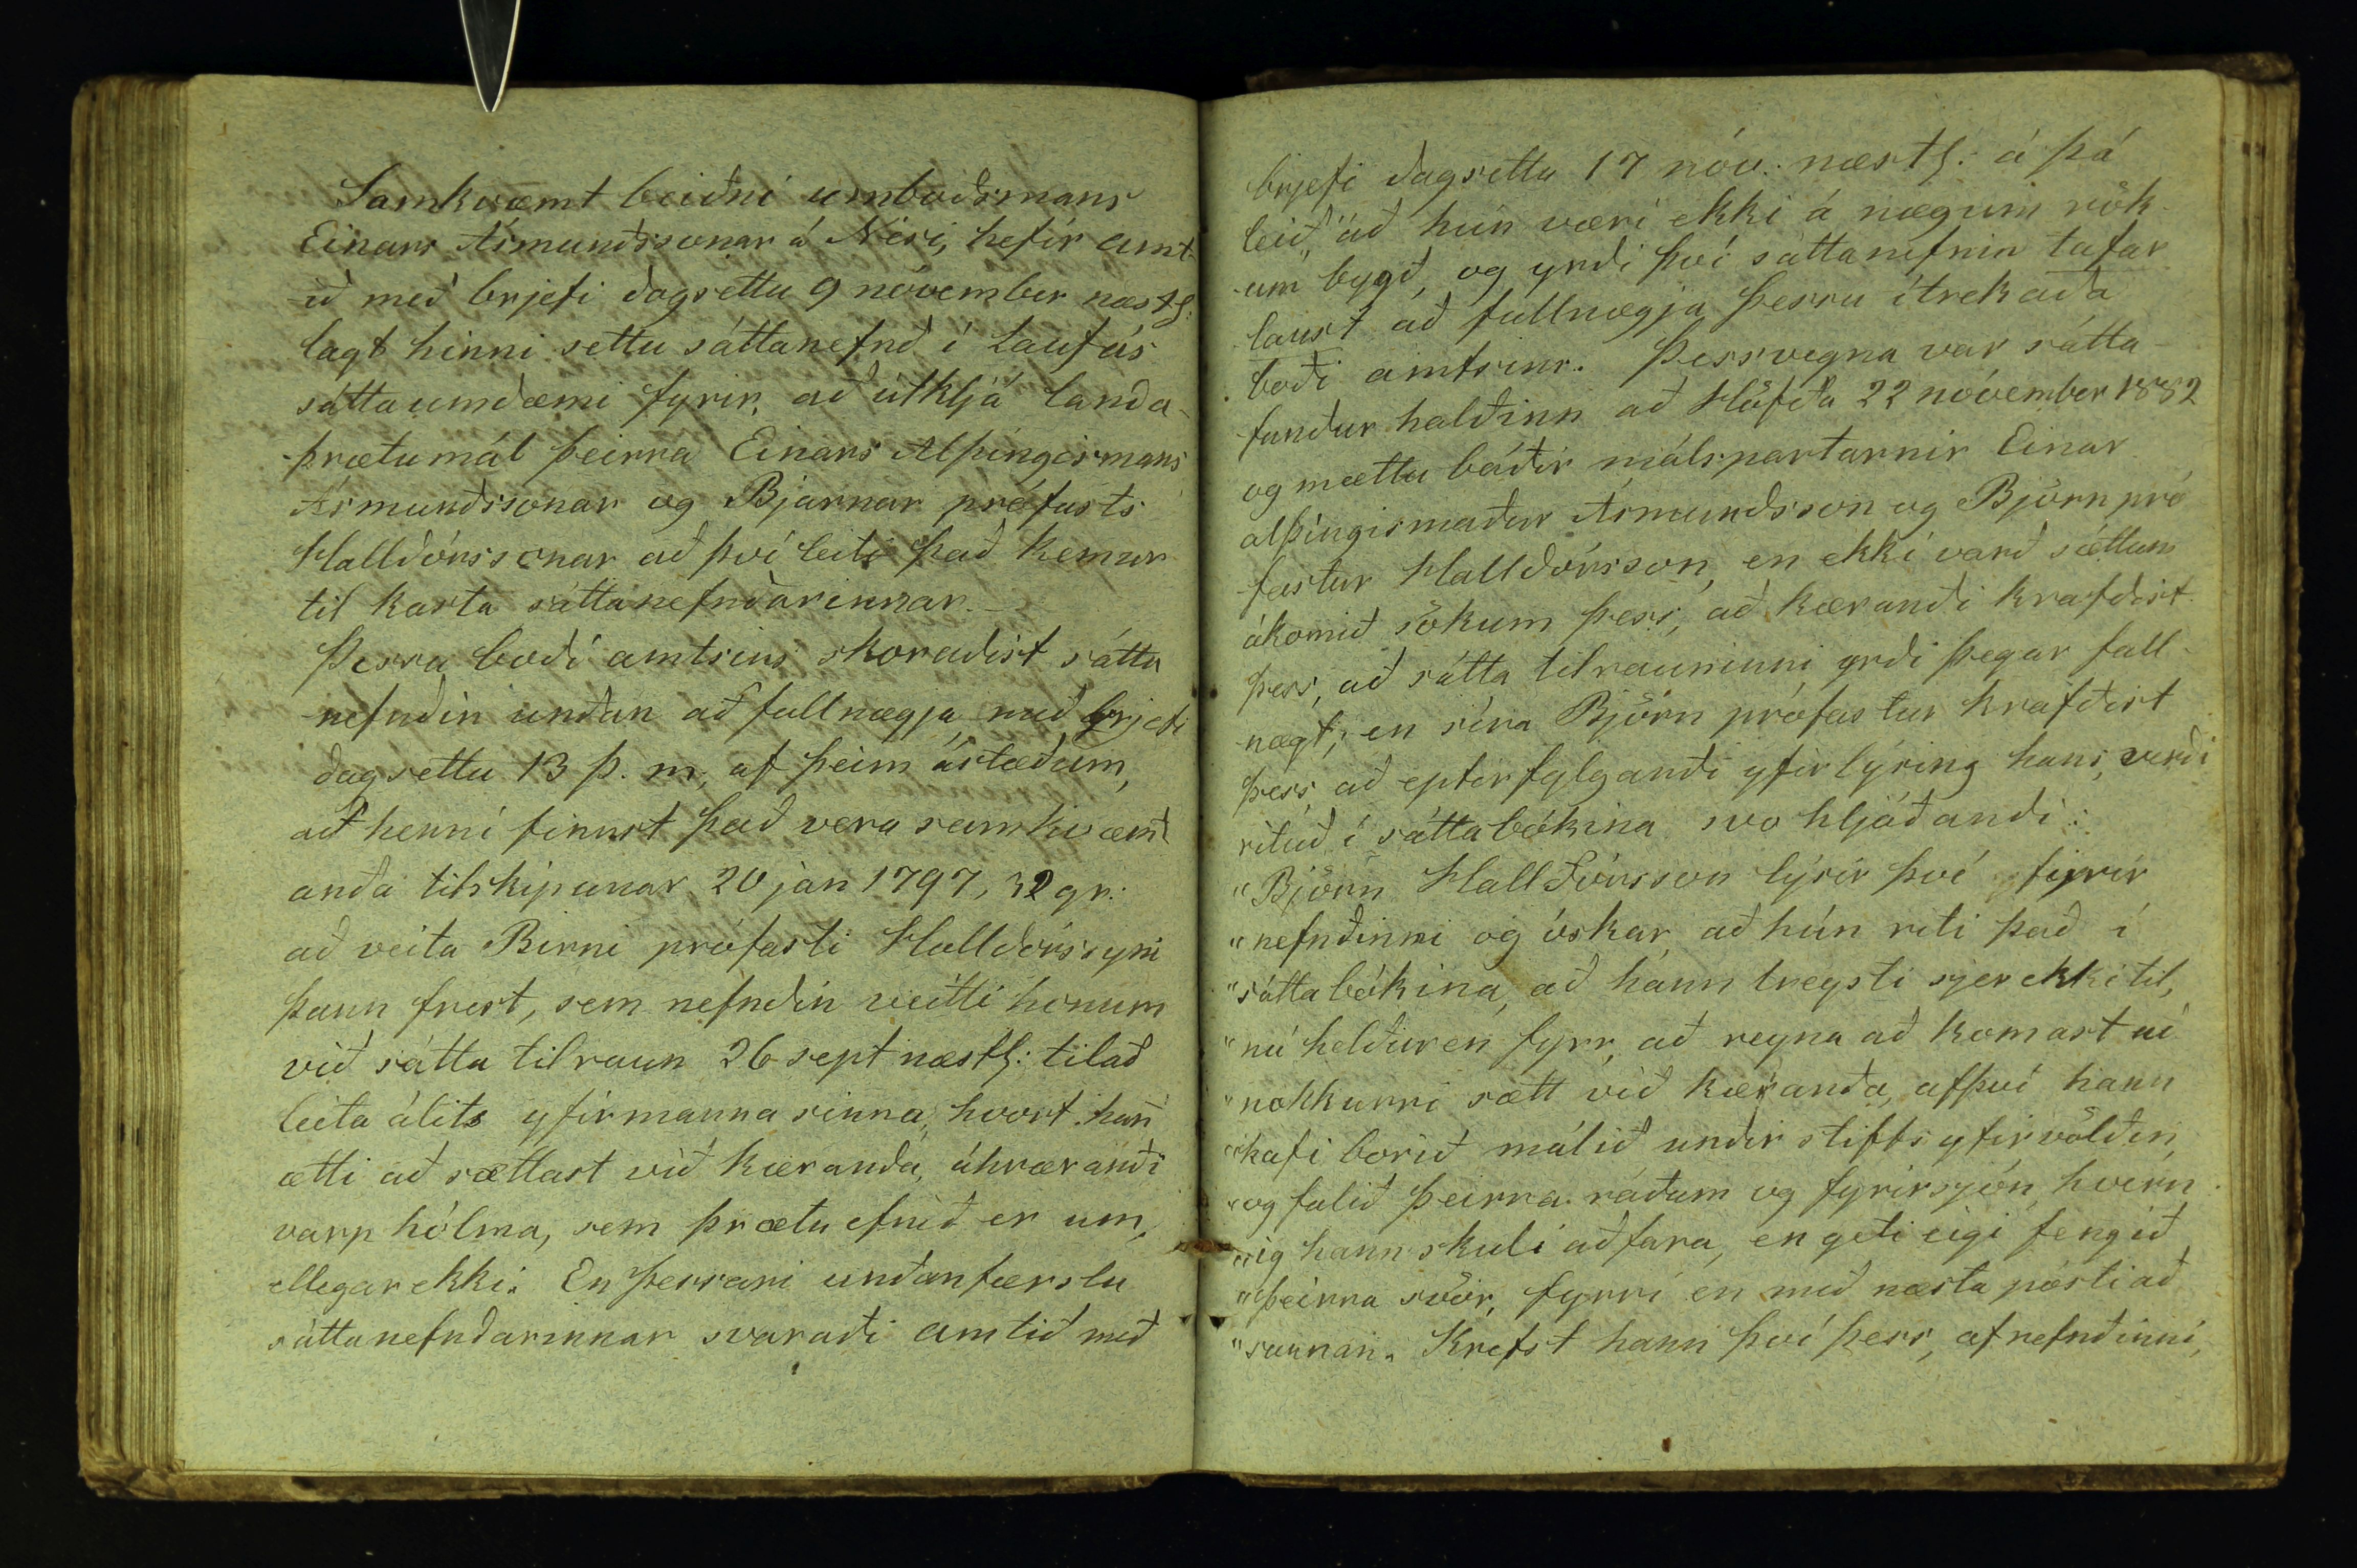 Samkvæmt beiðni umboðsmans
Einars Ásmundssonar á Nesi, hefir amt-
ið með brjefi dagsettu 9 nóvember næstl:
lagt hinni settu sáttanefnd í Laufás
sáttaumdæmi fyrir, að útkljá landa-
þrætumál þeirra Einars Alþingismans
Ásmundssonar og Bjarnar prófasts
Halldórssonar að því leiti það kemur
til kasta sáttanefndarinnar.-
Þessu boði amtsins skoraðist sátta
nefndin undan að fullnægja með brjefi
dagsettu 13 þ. m, af þeim ástæðum,
að henni finnst það vera samkvæmt
anda tilskipunar 20 jan 1797, 32 gr:
að veita Birni prófasti Halldórssyni
þann frest, sem nefndin veitti honum
við sátta tilraun 26 sept næstl: tilað
leita álits yfirmanna sinna, hvort hañ
ætti að sættast við kæranda, áhrærandi
varp hólma, sem þrætu efnið er um,
ellegar ekki. En þessari undanfærslu
sáttanefndarinnar svaraði amtið með
brjefi dagsettu 17 nóv: næstl: á þá
leið, að hún væri ekki á nægum rök-
um bygð, og yrði því sáttanefnin tafar
laust að fullnægja þessu ítrekaða
boði amtsins. Þessvegna var sátta-
fundur haldinn að Höfða 22 nóvember 1882
og mættu báðir málspartarnir Einar
alþingismaður Ásmundsson og Björn pró
fastur Halldórsson, en ekki varð sættum
ákomið sökum þess, að kærandi krafðist
þess, að sátta tilrauninni yrði þegar full-
nægt, en síra Björn prófastur krafðist
þess að eptirfylgandi yfirlýsing hans, verði
rituð í sáttabókina svo hljóðandi:
"Björn Halldórsson lýsir því fyrir
"nefndinni og óskar að hún riti það í
"sáttabókina, að hann treysti sjer ekki til,
"nú heldur en fyrr, að reyna að komast að
"nokkurri sætt við kæranda, afþví hann
"hafi borið málið undir stiftsyfirvöldin,
"og falið þeirra ráðum og fyrirsjón, hvern
"ig hann skuli aðfara, en geti eigi fengið
"þeirra svör, fyrri en með næsta pósti að
"sunnan. Krefst hann því þess, af nefndinni,